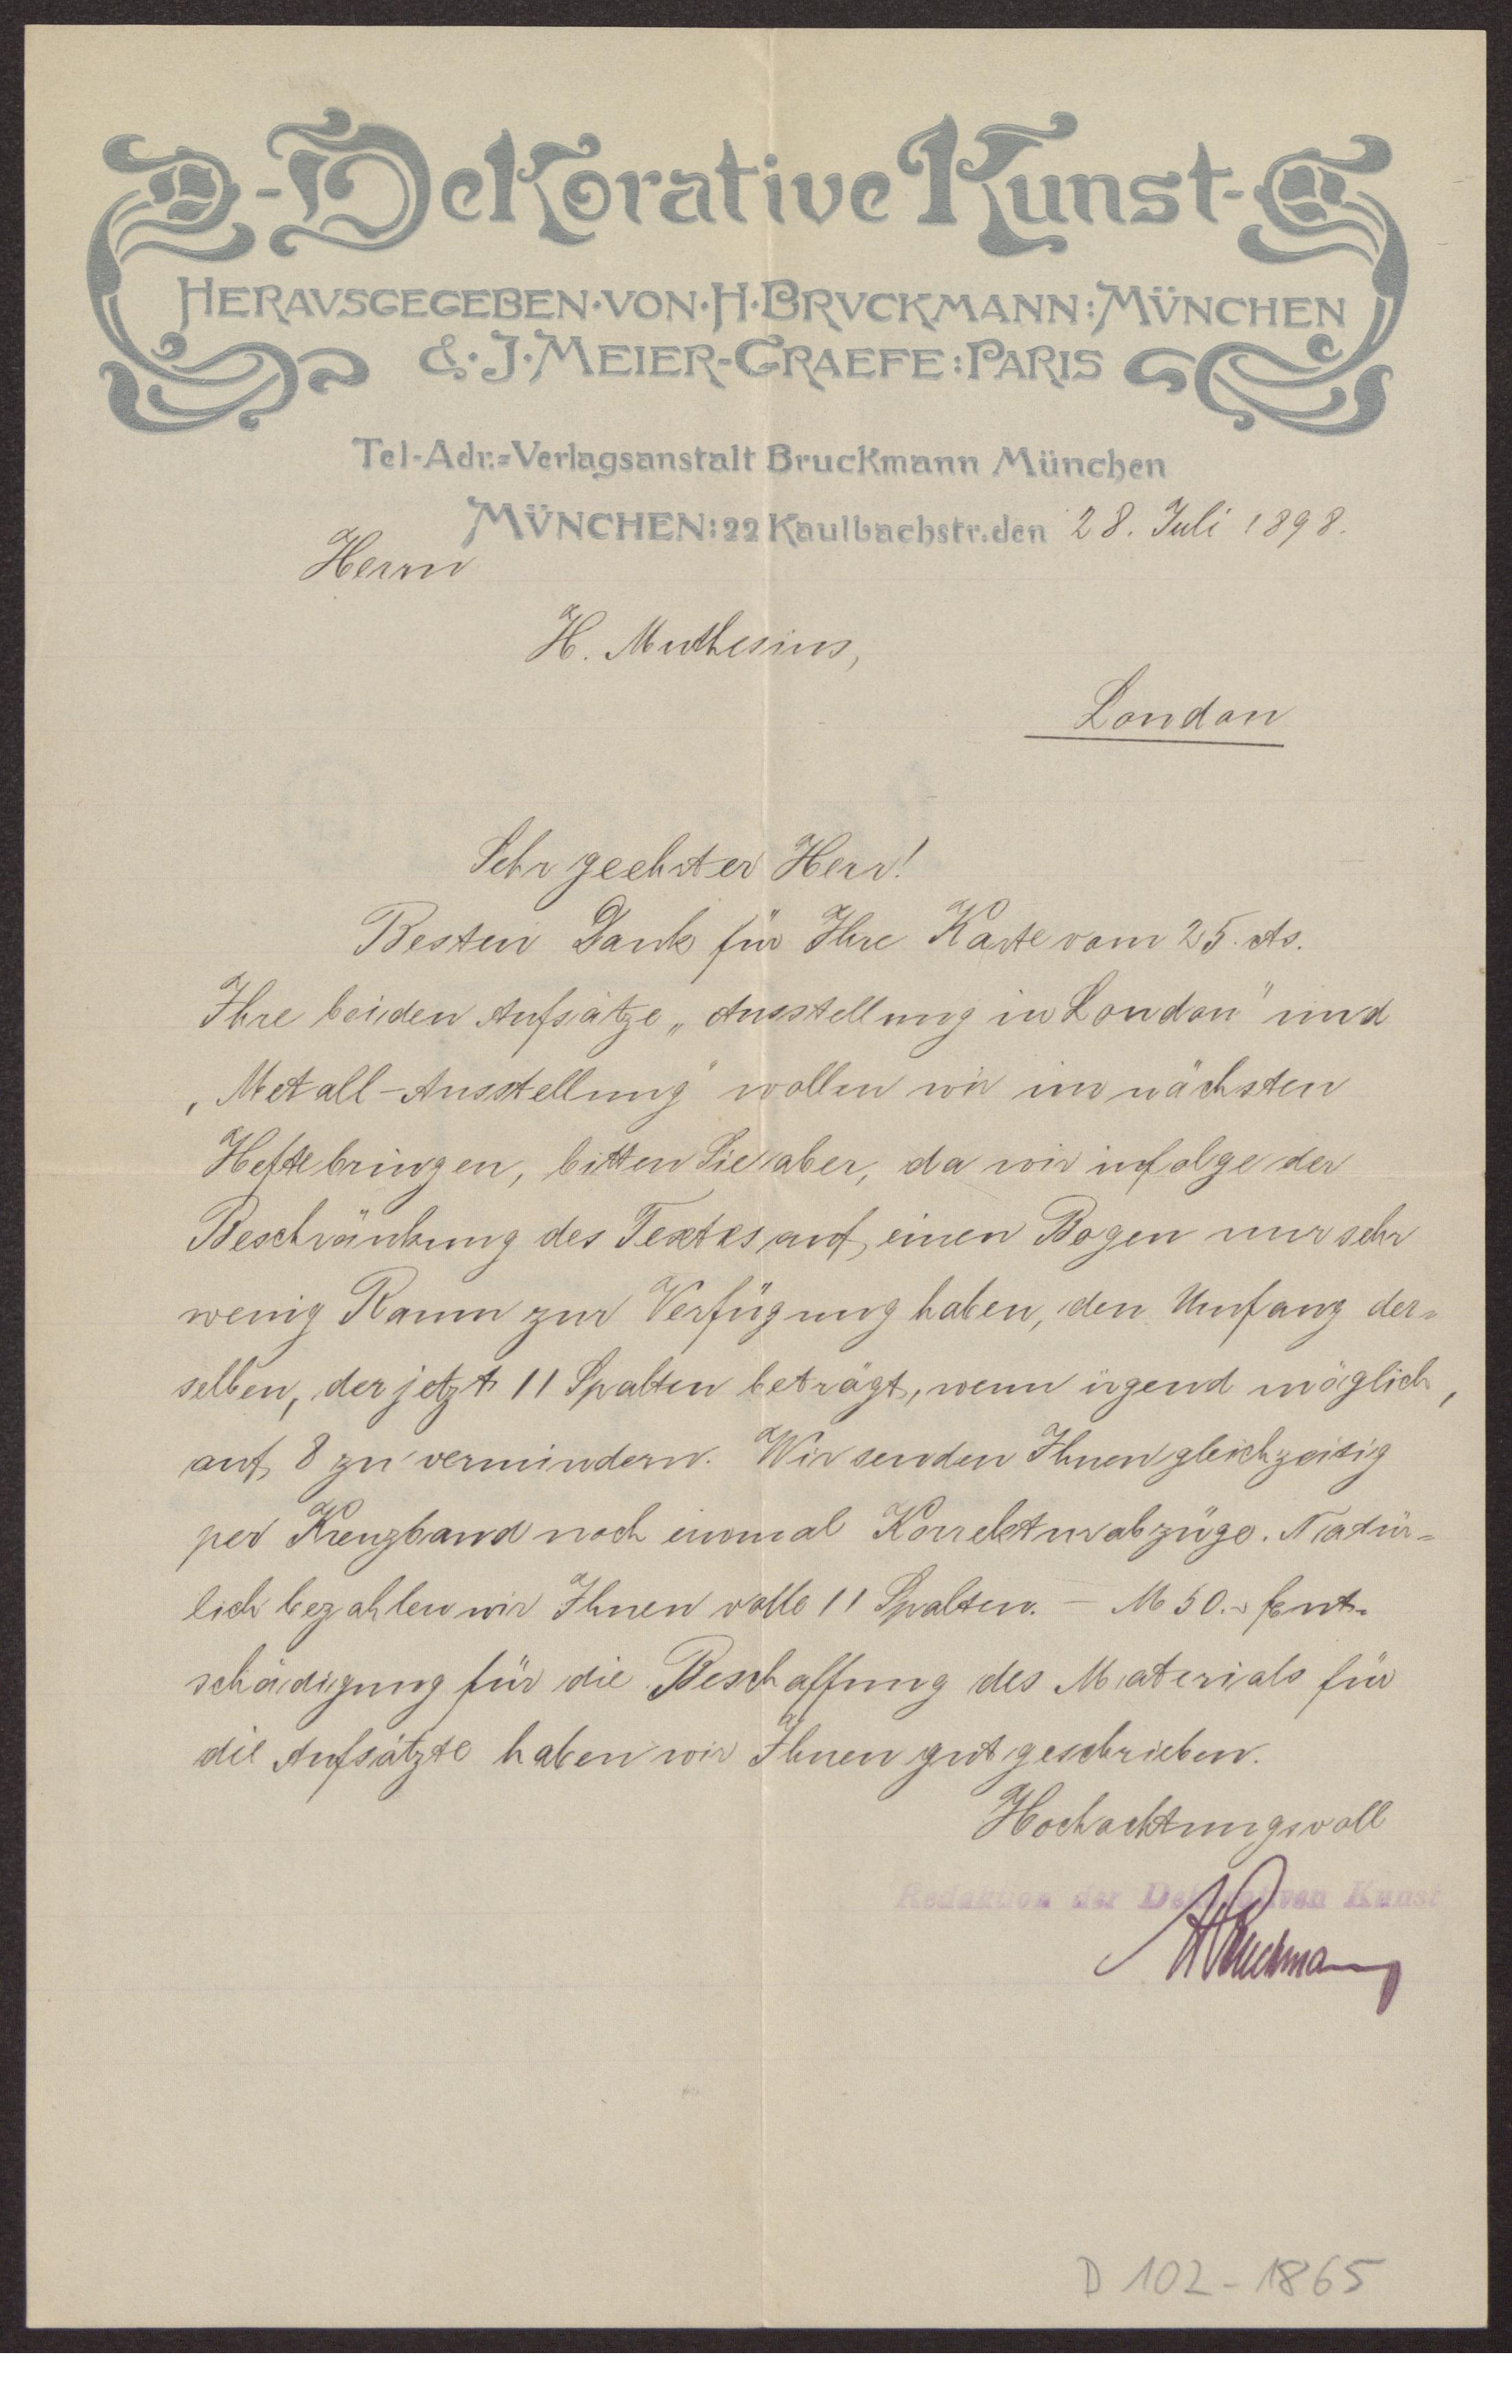 -Dekorative Kunst-
HERAVSGEGEBEN·VON·H·BRVCKMANN:MÜNCHEN
&·J·MEIER-GRAEFE:PARIS
Tel-Adr.=Verlagsanstalt Bruckmann München
MÜNCHEN:22 Kaulbachstr.den 28. Juli 1898.
Herrn
H. Muthesius,
London
Sehr geehrter Herr!
Besten Dank für Ihre Karte vom 25. ds.
Ihre beiden Aufsätze „Ausstellung in London" und
„Metall-Ausstellung" wollen wir im nächsten
Hefte bringen, bitten Sie aber, da wir infolge der
Beschränkung des Textes auf einen Bogen nur sehr
wenig Raum zur Verfügung haben, den Umfang der=
selben, der jetzt 11 Spalten beträgt, wenn irgend möglich,
auf 8 zu vermindern. Wir senden Ihnen gleichzeitig
per Kreuzband noch einmal Korrekturabzüge. Natür=
lich bezahlen wir Ihnen volle 11 Spalten. – M 50.- Ent=
schädigung für die Beschaffung des Materials für
die Aufsätze haben wir Ihnen gutgeschrieben.
Hochachtungsvoll
Redaktion der Dekorativen Kunst
H Bruckmann
D 102-1865